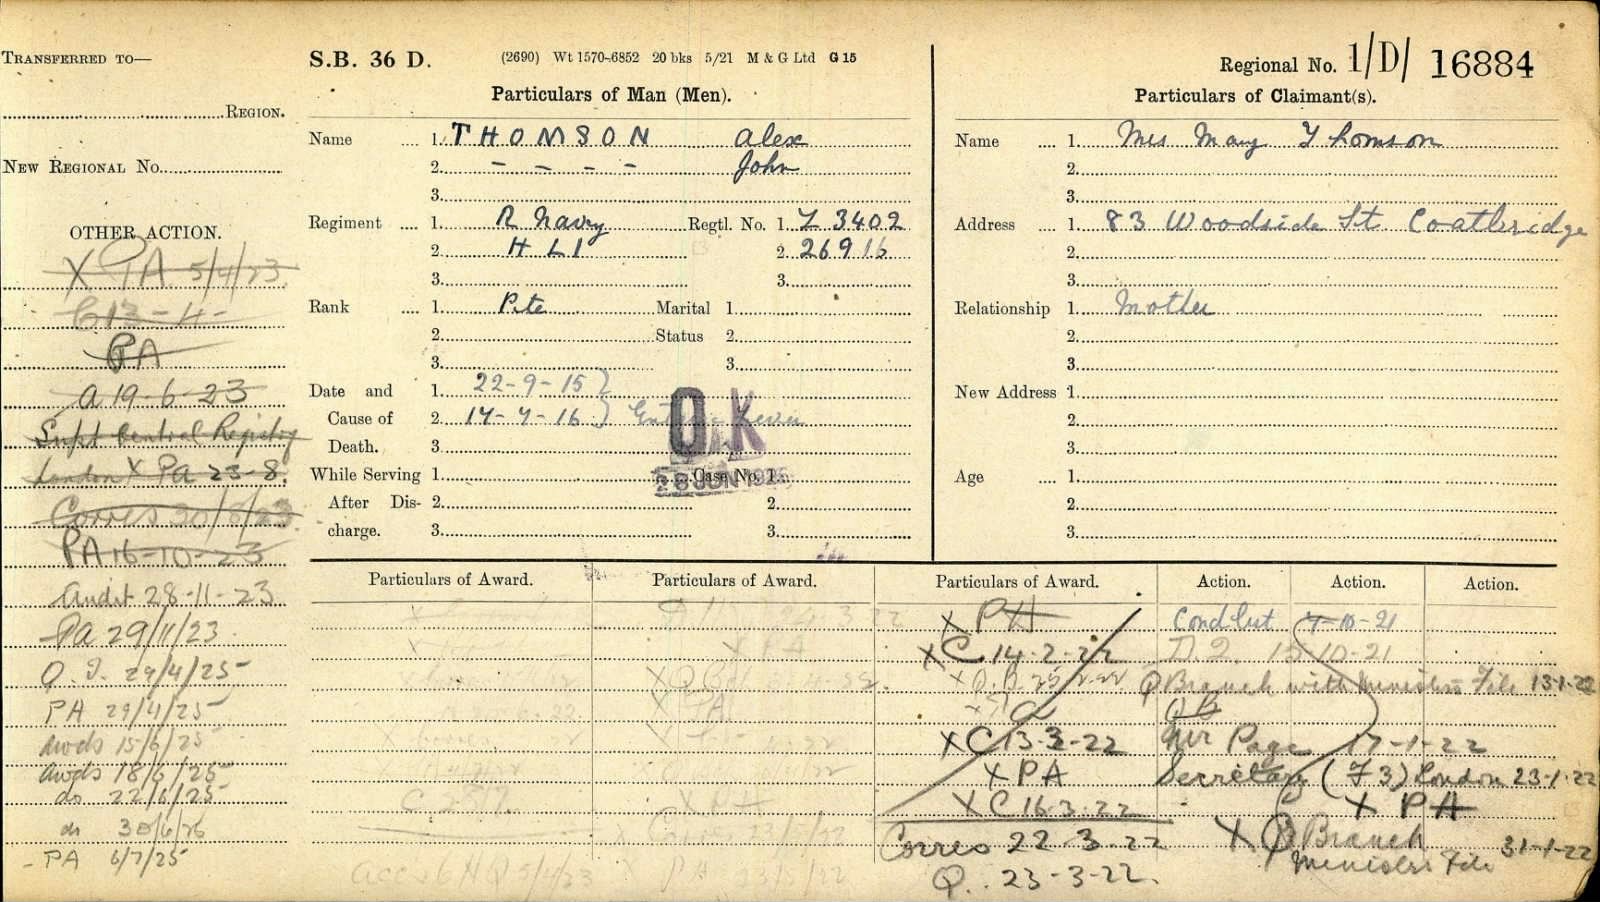 TRANSFERRED TO—
REGION.
NEW REGIONAL NO.
OTHER ACTION.
X PA 5/4/23
C 13-4-
PA
a 19-6-23
Supt Central Registry
London X PA 23-8.
Corres 30/8/23
PA 16-10-23
Audit 28-11-23
PA 29/11/23
Q. I. 29/4/25
PA 29/4/25
Awds 15/6/25
Awds 18/6/25
do 22/6/25
do 30/6/25
-PA 6/7/25
S.B. 36 D. (2690) Wt 1570-6852 20 bks 5/21 M & G Ltd G 15
Particulars of Man (Men).
Name .... 1. THOMSON Alex
2. - - - - John
3.
Regiment .... 1. R Navy Regtl. No. 1. Z 3402
2. H L I 2. 26916
3. 3.
Rank .... 1. Pte Marital 1.
2. Status 2.
3. 3.
Date and 1. 22-9-15 }
Cause of 2. 14-7-16 } Enteric Fever
Death. 3.
OK
28 JUN 192
While Serving 1. Case No. 1.
After Dis- 2. 2.
charge. 3. 3.
Regional No. 1/D/ 16884
Particulars of Claimant(s).
Name .... 1. Mrs Mary Thomson
2.
3.
Address .... 1. 83 Woodside St Coatbridge
2.
3.
Relationship 1. Mother
2.
3.
New Address 1.
2.
3.
Age .... 1.
2.
3.
Particulars of Award.
C 25/7.
Acc 6 HQ 5/4/23
Particulars of Award.
X PA
X PA
X PA
X PA 23/5/22
Particulars of Award.
X PA
X C 14-2-22
X Q.B. 25/2-22
a
X C 13-3-22
X PA
X C 16-3-22
Corres 22-3-22
Q. 23-3-22.
Action. Action. Action.
Cond Cut 7-10-21
D.2. 15-10-21
Q Branch with Ministers File 13-1-22
QB
Mr Page 17-1-22
Secretary (F3) London 23-1-22
X PA
X Q Branch 31-1-22
Ministers File